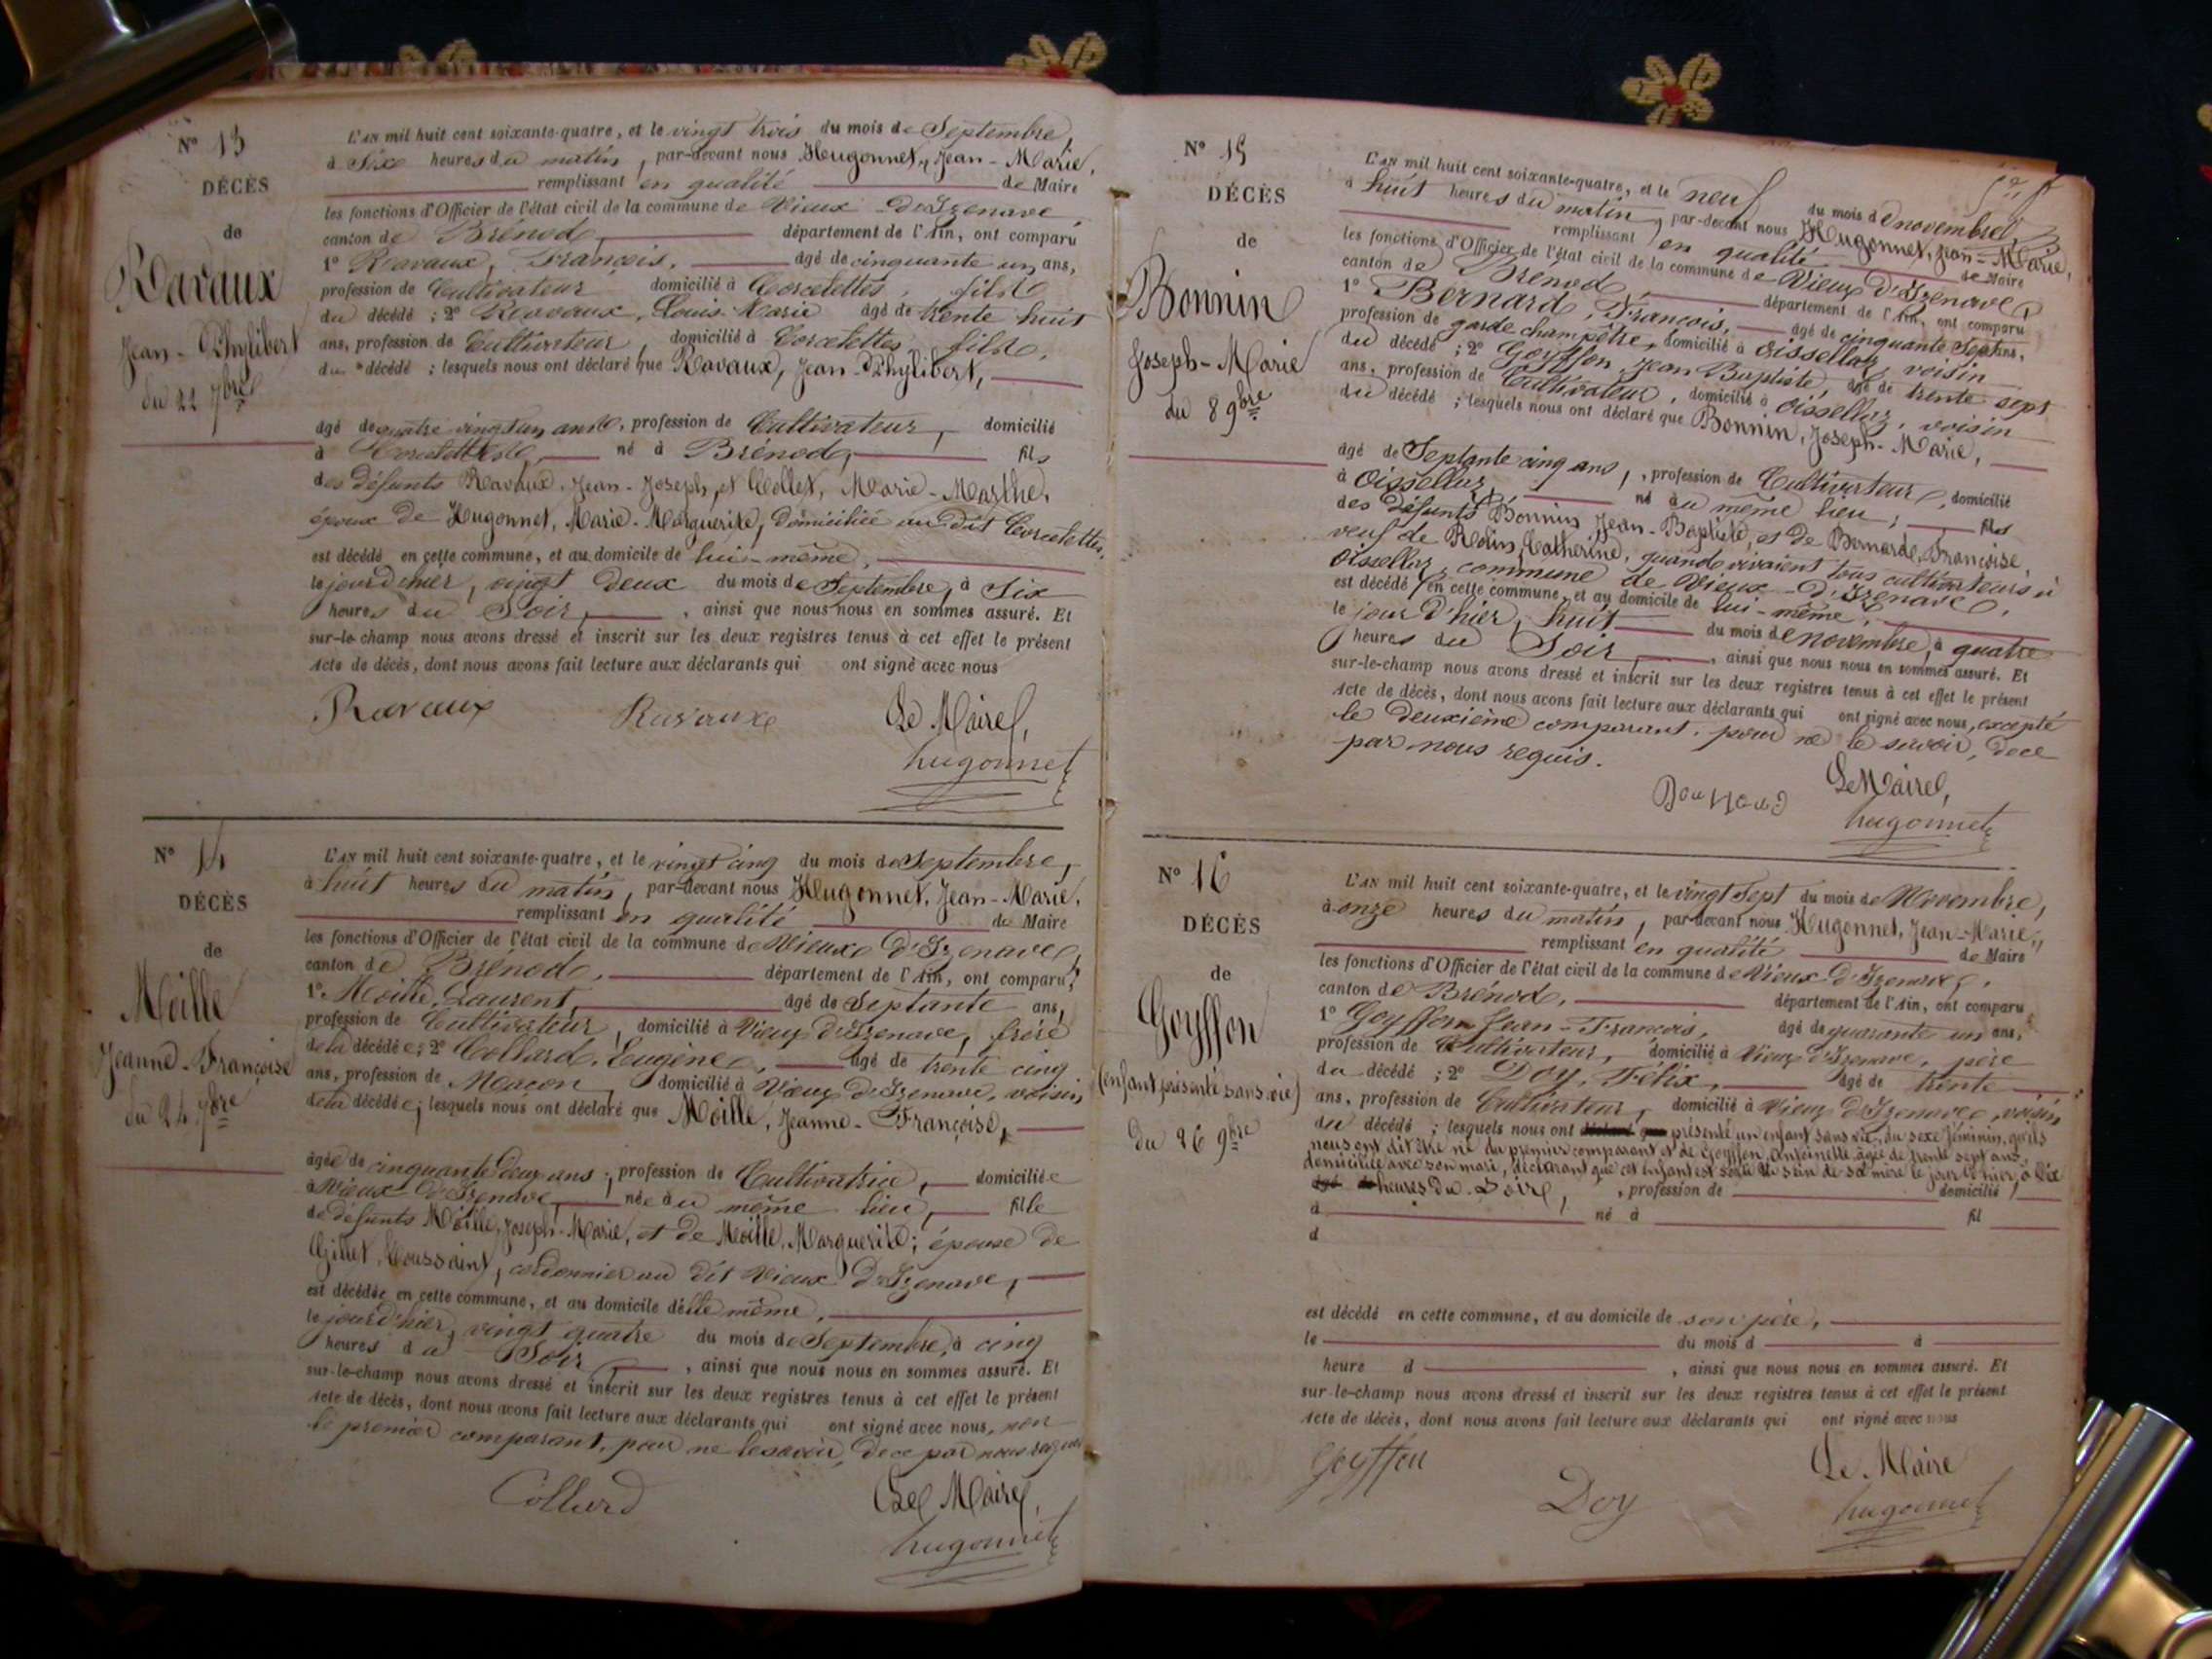 N° 13
DÉCÈS
de
Ravaux
Jean-Phylibert
du 22 7bre
L'AN mil huit cent soixante-quatre, et le vingt trois du mois de Septembre,
à Six heures du matin, par-devant nous Hugonnet, Jean-Marie,
remplissant en qualité de Maire
les fonctions d'Officier de l'état civil de la commune de Vieux-d'Izenave,
canton de Brénod, département de l'Ain, ont comparu
1° Ravaux, François, âgé de cinquante un ans,
profession de Cultivateur domicilié à Corcelettes, fils
du décédé ; 2° Ravaux, Louis-Marie âgé de trente huit
ans, profession de Cultivateur, domicilié à Corcelettes, fils,
du décédé ; lesquels nous ont déclaré que Ravaux, Jean-Phylibert,
âgé de quatre vingt un ans, profession de Cultivateur, domicilié
à Corcelettes, né à Brénod, fils
des défunts Ravaux, Jean-Joseph, et Collet, Marie-Marthe,
époux de Hugonnet, Marie-Marguerite, domiciliée au dit Corcelettes,
est décédé en cette commune, et au domicile de lui-même,
le jour d'hier, vingt deux du mois de Septembre, à Six
heures du Soir, , ainsi que nous nous en sommes assuré. Et
sur-le-champ nous avons dressé et inscrit sur les deux registres tenus à cet effet le présent
Acte de décès, dont nous avons fait lecture aux déclarants qui ont signé avec nous
Ravaux Ravaux Le Maire,
hugonnet
N° 14
DÉCÈS
de
Moille
Jeanne-Françoise
du 24 7bre
L'AN mil huit cent soixante-quatre, et le vingt cinq du mois de Septembre,
à huit heures du matin, par-devant nous Hugonnet, Jean-Marie,
remplissant en qualité de Maire
les fonctions d'Officier de l'état civil de la commune de Vieux d'Izenave,
canton de Brénod, département de l'Ain, ont comparu,
1° Moille, Laurent, âgé de Septante ans,
profession de Cultivateur, domicilié à Vieux d'Izenave, frère
de la décédée; 2° Collard, Eugène, âgé de trente cinq
ans, profession de Maçon, domicilié à Vieux d'Izenave, voisin
de la décédée; lesquels nous ont déclaré que Moille, Jeanne-Françoise,
âgée de cinquante deux ans, profession de Cultivatrice, domiciliée
à Vieux d'Izenave, née au même lieu, fille
de défunts Moille, Joseph-Marie, et de Moille, Marguerite; épouse de
Gillet, Toussaint, cordonnier au dit Vieux d'Izenave,
est décédée en cette commune, et au domicile d'elle même,
le jour d'hier, vingt quatre du mois de Septembre, à cinq
heures du Soir, , ainsi que nous nous en sommes assuré. Et
sur-le-champ nous avons dressé et inscrit sur les deux registres tenus à cet effet le présent
Acte de décès, dont nous avons fait lecture aux déclarants qui ont signé avec nous, non
le premier comparant, pour ne le savoir, de ce par nous requis
Collard Le Maire,
hugonnet
N° 15
DÉCÈS
de
Bonnin
Joseph-Marie
du 8 9bre
L'AN mil huit cent soixante-quatre, et le neuf du mois de novembre,
à huit heures du matin, par-devant nous Hugonnet, Jean-Marie,
remplissant en qualité de Maire
les fonctions d'Officier de l'état civil de la commune de Vieux d'Izenave,
canton de Brénod, département de l'Ain, ont comparu
1° Bernard, François, âgé de cinquante Sept ans,
profession de garde champêtre, domicilié à Oissellaz, voisin
du décédé ; 2° Goyffon, Jean Baptiste, âgé de trente sept
ans, profession de Cultivateur, domicilié à Oissellaz, voisin
du décédé ; lesquels nous ont déclaré que Bonnin, Joseph-Marie,
âgé de Septante cinq ans, , profession de Cultivateur, domicilié
à Oissellaz, né au même lieu, fils
des défunts Bonnin, Jean-Baptiste, et de Bernarde, Françoise,
veuf de Catherine, quand vivaient tous cultivateurs à
Oissellaz, commune de Vieux-d'Izenave,
est décédé en cette commune, et au domicile de lui-même,
le jour d'hier, huit du mois de novembre, à quatre
heures du Soir, , ainsi que nous nous en sommes assuré. Et
sur-le-champ nous avons dressé et inscrit sur les deux registres tenus à cet effet le présent
Acte de décès, dont nous avons fait lecture aux déclarants qui ont signé avec nous, excepté
le deuxième comparant, pour ne le savoir, de ce
par nous requis.
Le Maire,
hugonnet
N° 16
DÉCÈS
de
Goyffon
(enfant présenté sans vie)
du 26 9bre
L'AN mil huit cent soixante-quatre, et le vingt Sept du mois de Novembre,
à onze heures du matin, par-devant nous Hugonnet, Jean-Marie,
remplissant en qualité de Maire
les fonctions d'Officier de l'état civil de la commune de Vieux-d'Izenave,
canton de Brénod, département de l'Ain, ont comparu
1° Goyffon Jean-François, âgé de quarante un ans,
profession de Cultivateur, domicilié à Vieux d'Izenave, père
du décédé ; 2° Doy, Félix, âgé de trente
ans, profession de Cultivateur, domicilié à Vieux d'Izenave, voisin
du décédé ; lesquels nous ont déclaré que présenté un enfant sans vie, du sexe féminin, qu'ils
nous ont dit être né du premier comparant et de Goyffon, Antoinette âgée de trente sept ans,
domiciliée avec son mari, déclarant que cet enfant est sorti du sein de sa mère le jour d'hier, à dix
âgé de heures du Soir, , profession de domicilié
à né à fil
d
est décédé en cette commune, et au domicile de son père,
le du mois d à
heure d , ainsi que nous nous en sommes assuré. Et
sur-le-champ nous avons dressé et inscrit sur les deux registres tenus à cet effet le présent
Acte de décès, dont nous avons fait lecture aux déclarants qui ont signé avec nous
Goyffon Doy Le Maire
hugonnet